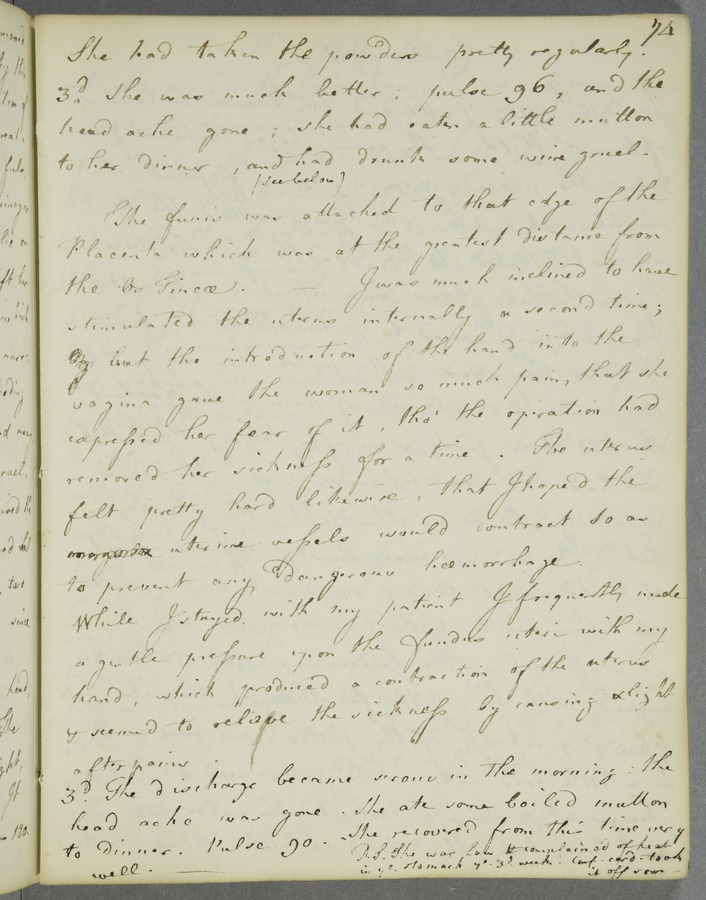 74
She had taken the powders pretty regularly.
3d. She was much better; pulse 96, and the
head ache gone; she had eaten a little mutton
to her dinner, and had drunk some wine gruel.
(see below)
The funis was attached to that edge of the
Placenta which was at the greatest distance from
the Os Tincæ. — I was much inclined to have
stimulated the uterus internally a second time;
but the introduction of the hand into the
vagina gave the woman so much pain, that she
expressed her fear of it, tho' the operation had
removed her sickness for a time. The uterus
felt pretty hard likewise, that I hoped the
uterine vessels would contract so as
to prevent any dangerous hæmorrhage.
While I stayed with my patient I frequently made
a gentle pressure upon the fundus uteri with my
hand, which produced a contraction of the uterus
& seemed to relieve the sickness by causing slight
after pains.
3d. The discharge became serous in the morning: the
head ache was gone. She ate some boiled mutton
to dinner. Pulse 90. She recovered from this time very
well. —
P.S. She was low & complained of heat
in ye. stomach ye. 3d. week. Conf. card. took
it off soon